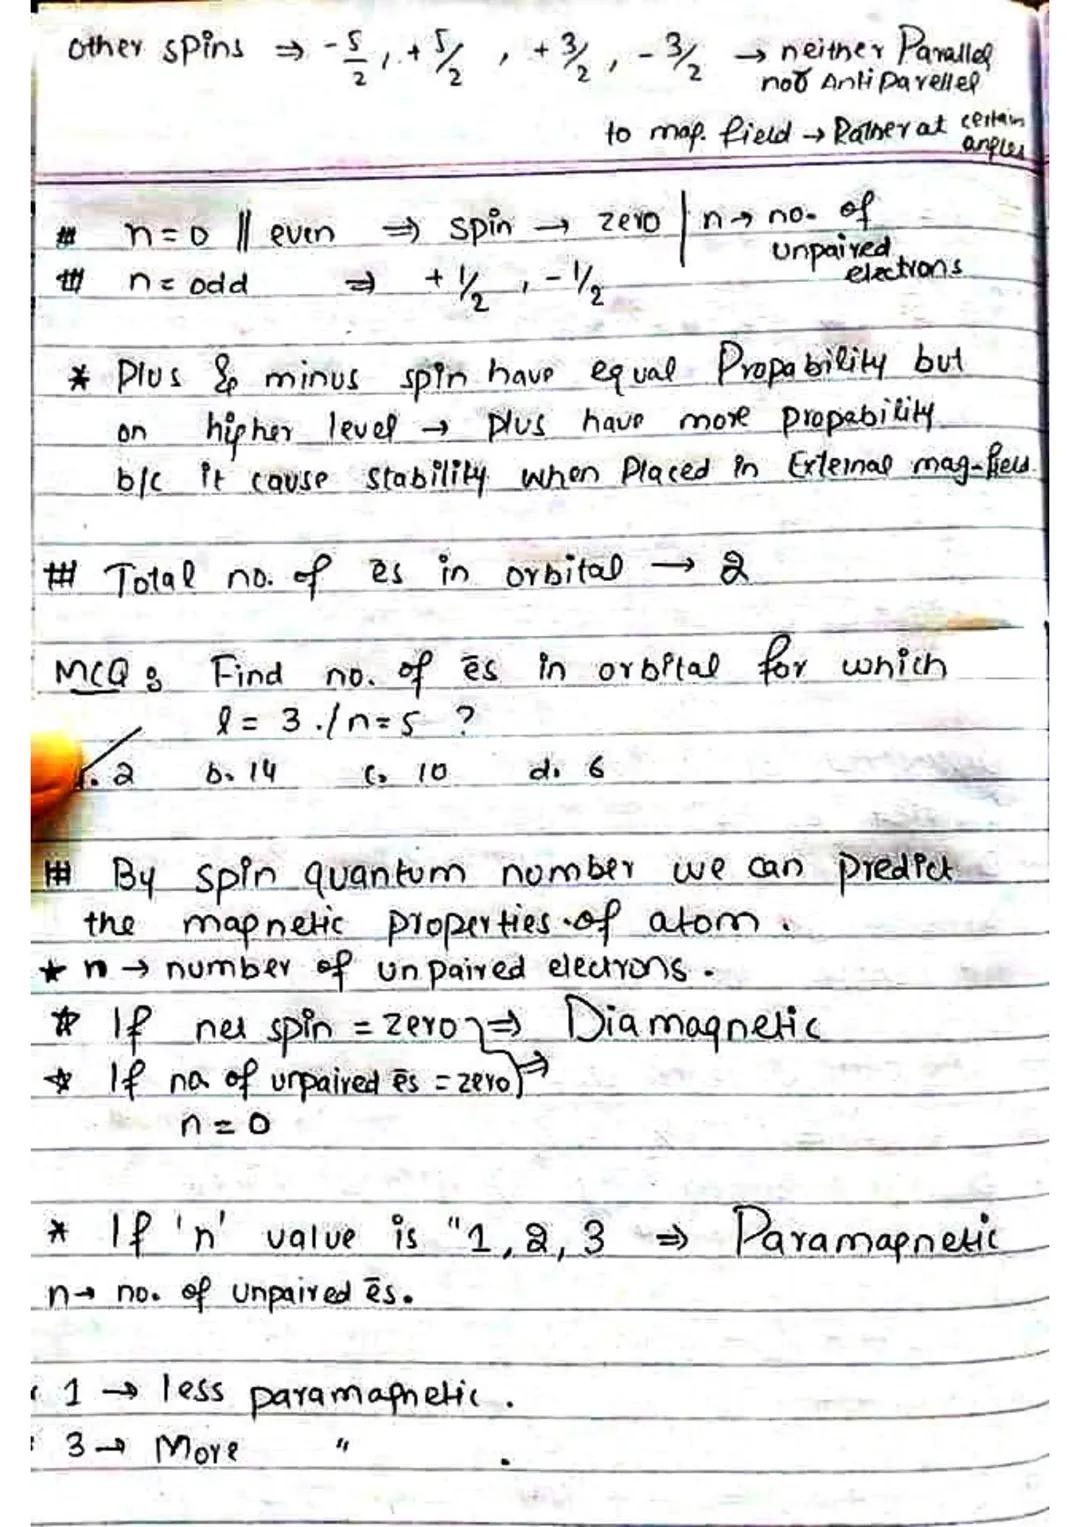 other spins ⇒ -5/2, +5/2, +3/2, -3/2 → neither Parallel
nor Antiparellel
to mag. field → Rather at certain
angles
# n=0 || even ⇒ spin → zero | n → no. of
unpaired
electrons
# n = odd ⇒ +1/2, -1/2
* Plus & minus spin have equal Propability but
on higher level → plus have more propability
b/c it cause stability when Placed in External mag-field.
# Total no. of ēs in orbital → 2
MCQ: Find no. of ēs in orbital for which
l = 3 ./ n=5 ?
. 2 b. 14 c. 10 d. 6
# By spin quantum number we can predict
the magnetic properties of atom.
* n → number of unpaired electrons.
* If net spin = zero ⇒ Diamagnetic
* If no. of unpaired ēs = zero ⇒
n = 0
* If 'n' value is "1, 2, 3 ⇒ Paramagnetic
n → no. of unpaired ēs.
1 → less paramagnetic.
3 → More " .